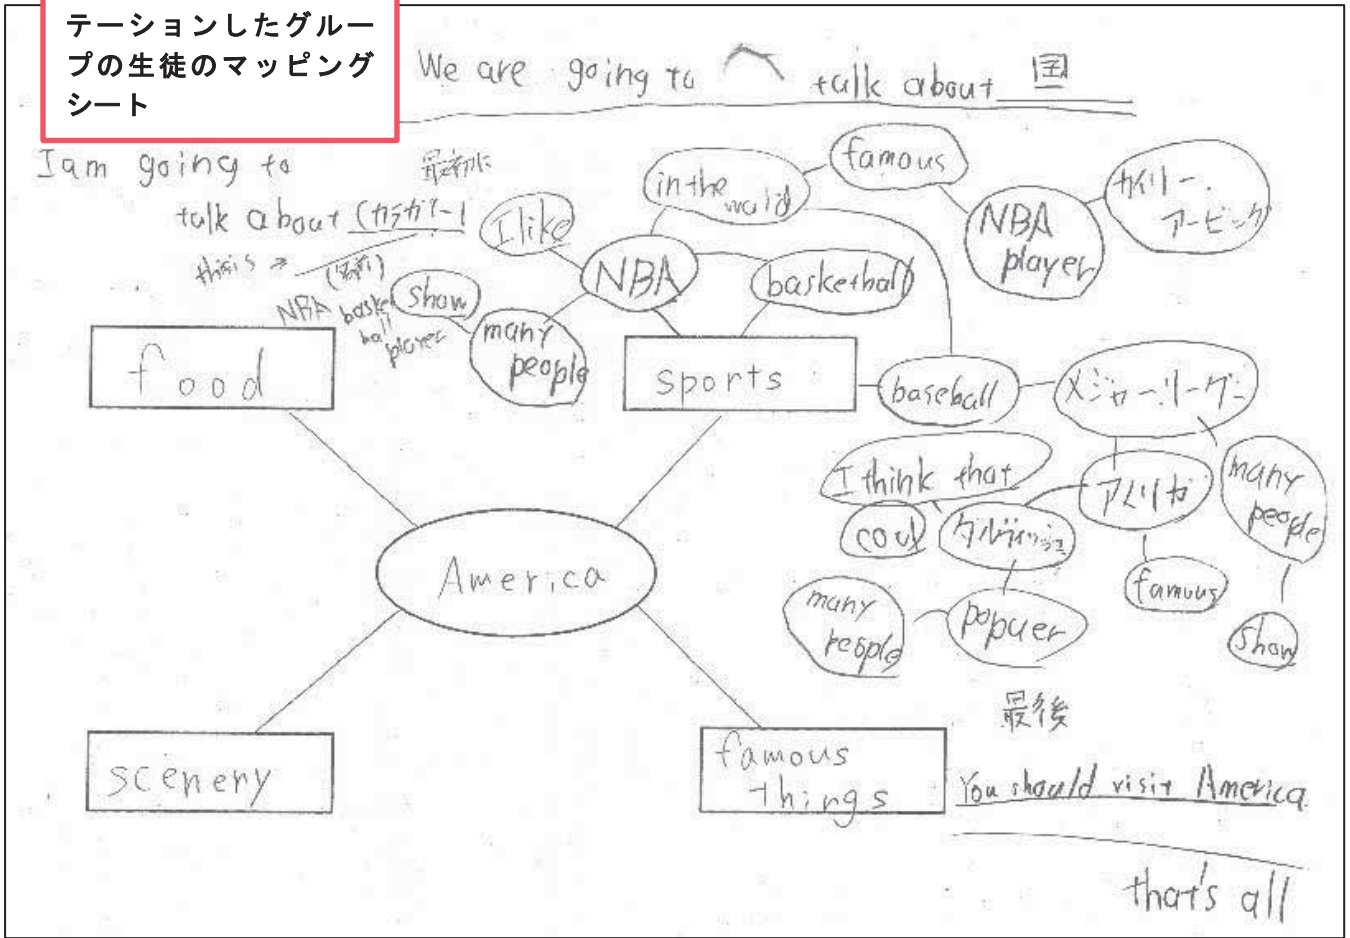 テーションしたグルー
プの生徒のマッピング
シート
We are going to talk about 国
I am going to
最初に
talk about (カテゴリー)
this is →
NBA basket
ball
player
I like
in the
world
famous
NBA
player
カイリー・
アービング
NBA
basketball
show
many
people
food
sports
baseball
メジャーリーグ
I think that
cool
ダルヴィッシュ
アメリカ
many
people
famous
show
many
people
popuer
America
最後
scenery
famous
things
You should visit America
that's all